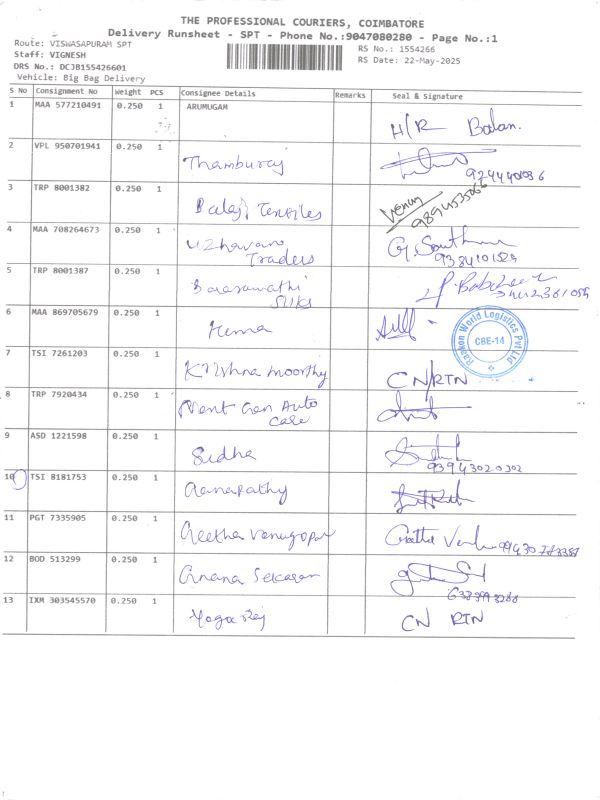 THE PROFESSIONAL COURIERS, COIMBATORE
Delivery Runsheet - SPT - Phone No.:9047080280 - Page No.:1
Route: VISWASAPURAM SPT
RS No.: 1554266
Staff: VIGNESH
RS Date: 22-May-2025
DRS No.: DCJB155426601
Vehicle: Big Bag Delivery
S No Consignment No Weight PCS Consignee Details Remarks Seal & Signature
1 MAA 577210491 0.250 1 ARUMUGAM H/R Balan.
2 VPL 950701941 0.250 1 Thamburaj
3 TRP 8001382 0.250 1 Balaji Textiles Venu
4 MAA 708264673 0.250 1 Uzhavan Traders
9384101525
5 TRP 8001387 0.250 1 Saraswathi Silks
6 MAA 869705679 0.250 1 Hema
Raaken World Logistics Pvt Ltd
CBE-14
7 TSI 7261203 0.250 1 Krishna moorthy CN/RTN
8 TRP 7920434 0.250 1 Next Gen Auto Care
9 ASD 1221598 0.250 1 Sudha
93943020302
10 TSI 8181753 0.250 1 Ganapathy
11 PGT 7335905 0.250 1 Geetha Venugopal
12 BOD 513299 0.250 1 Gnana Sekaran
13 IXM 303545570 0.250 1 Yoga Raj CN RTN